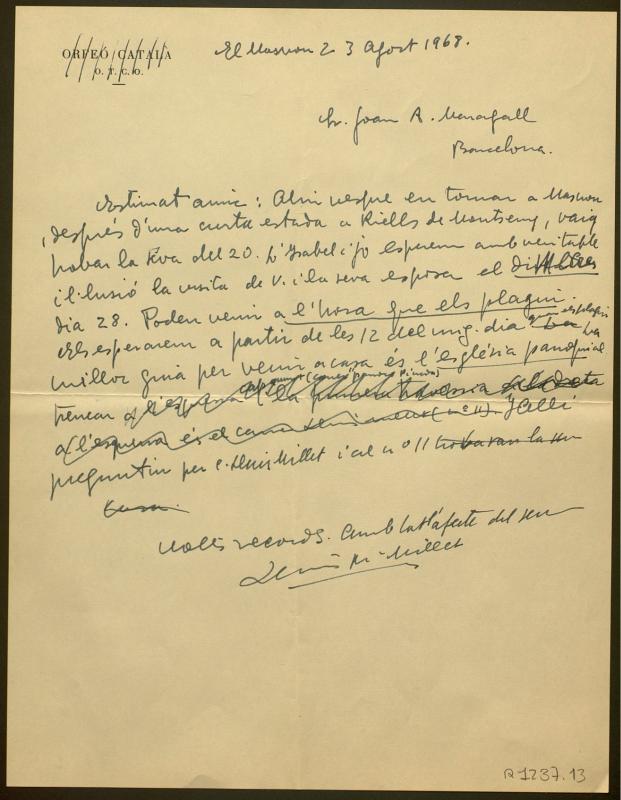 ORFEÓ CATALÀ
O. T. C. O.
El Masnou 23 Agost 1968.
Sr. Joan A. Maragall
Barcelona.
Estimat amic: Ahir vespre en tornar a Masnou
, després d'una curta estada a Riells de Montseny, vaig
trobar la seva del 20. L'Isabel i jo esperem amb veritable
il·lusió la visita de V. i la seva esposa el
dia 28. Poden venir a l'hora que els plagui.
Els esperarem a partir de les 12 del mig-dia
millor guia per venir a casa és l'església parroquial
trencar a l'esquerra la primera travessia
a l'esquerra és el carrer (nº 11). Allí
preguntin per c. Lluís Millet i al nº 11 trobaran la seva
casa.
Molts records. Amb tot l'afecte del seu
Lluís Mª Millet
R 1237.13